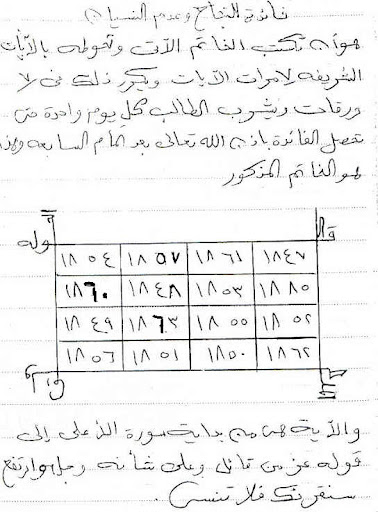 فائدة النجاح وعدم النسيان
هو أن تكتب الخاتم الآتى وتحوطه بالآيات
الشريفه ٧ مرات الآيات ويكرر ذلك فى ٧
ورقات ويشرب الطالب كل يوم واحدة حتى
تحصل الفائدة باذن الله تعالى بعد تمام السابعه وهذا
هو الخاتم المذكور
وله
١٨٤٧ ١٨٦١ ١٨٥٧ ١٨٥٤
١٨٨٥ ١٨٥٣ ١٨٤٨ ١٨٦٠
١٨٥٢ ١٨٥٥ ١٨٦٣ ١٨٤٩
١٨٦٢ ١٨٥٠ ١٨٥١ ١٨٥٦
والآية هى من بداية سورة الأعلى إلى
قوله عز من قائل وعلى شأنه وجل وارتفع
سنقرئك فلا تنسى